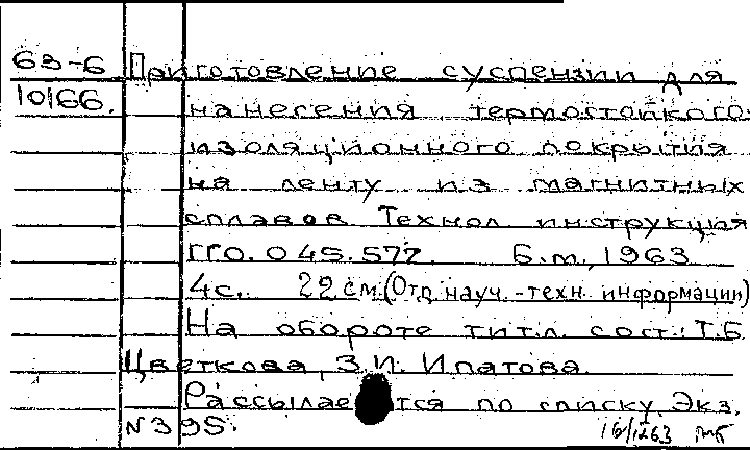 63-6 Приготовление суспензии для
10166. нанесения термостойкого
изоляционного покрытия
на ленту из магнитных
сплавов Технол инструкция
ГГО.045.577. Б.м., 1963
4с. 29 см (Отд науч.-техн. информации)
На обороте титл. сост.: Т.Б.
Цветкова, З.И. Ипатова.
Рассылается по списку. Экз.
N395.